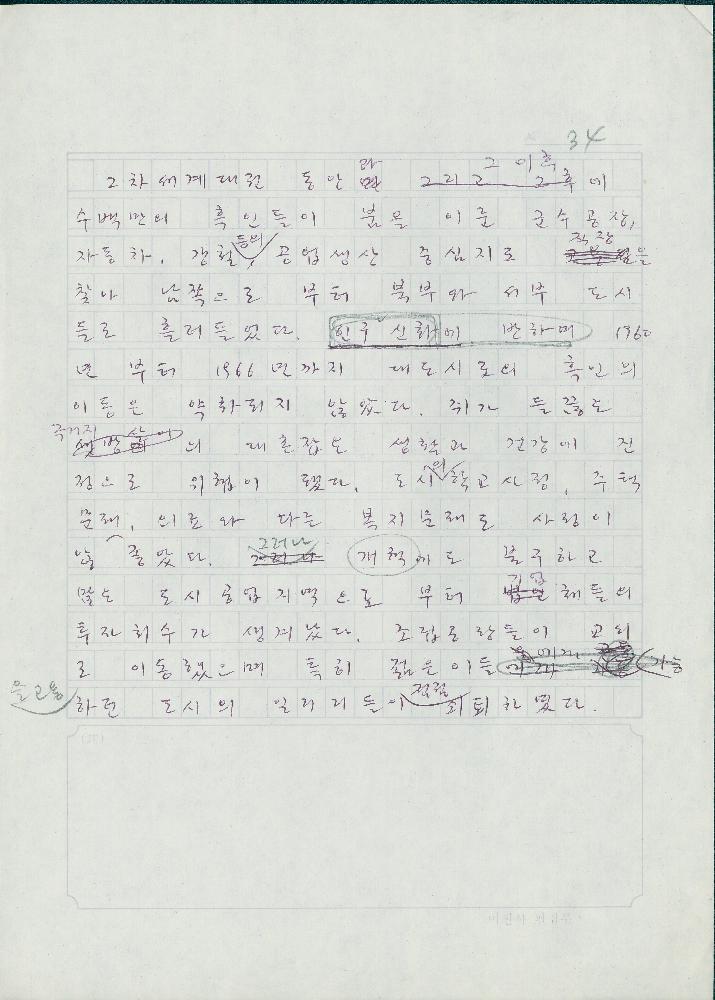 34
2차세계대전 동안 과 그 이후에
수백만의 흑인들이 붐을 이룬 군수공장,
자동차, 강철 등의 공업생산 중심지로 직장을
찾아 남쪽으로 부터 북부와 서부 도시
들로 흘러들었다. 인구 신화에 반하며 1960
년 부터 1966년까지 대도시로의 흑인의
이동은 약화되지 않았다. 쥐가 들끓는
주거지의 대혼잡도 생활과 건강에 진
정으로 위협이 됐다. 도시의 학교사정, 주택
문제, 의료와 다른 복지문제도 사정이
않 좋았다. 그러나 개혁에도 불구하고
많은 도시공업지역으로 부터 기업체들의
투자회수가 생겨났다. 조립공장들이 교외
로 이동했으며 특히 젊은이들
을 고용하던 도시의 일터리들이 점점 쇠퇴하였다.